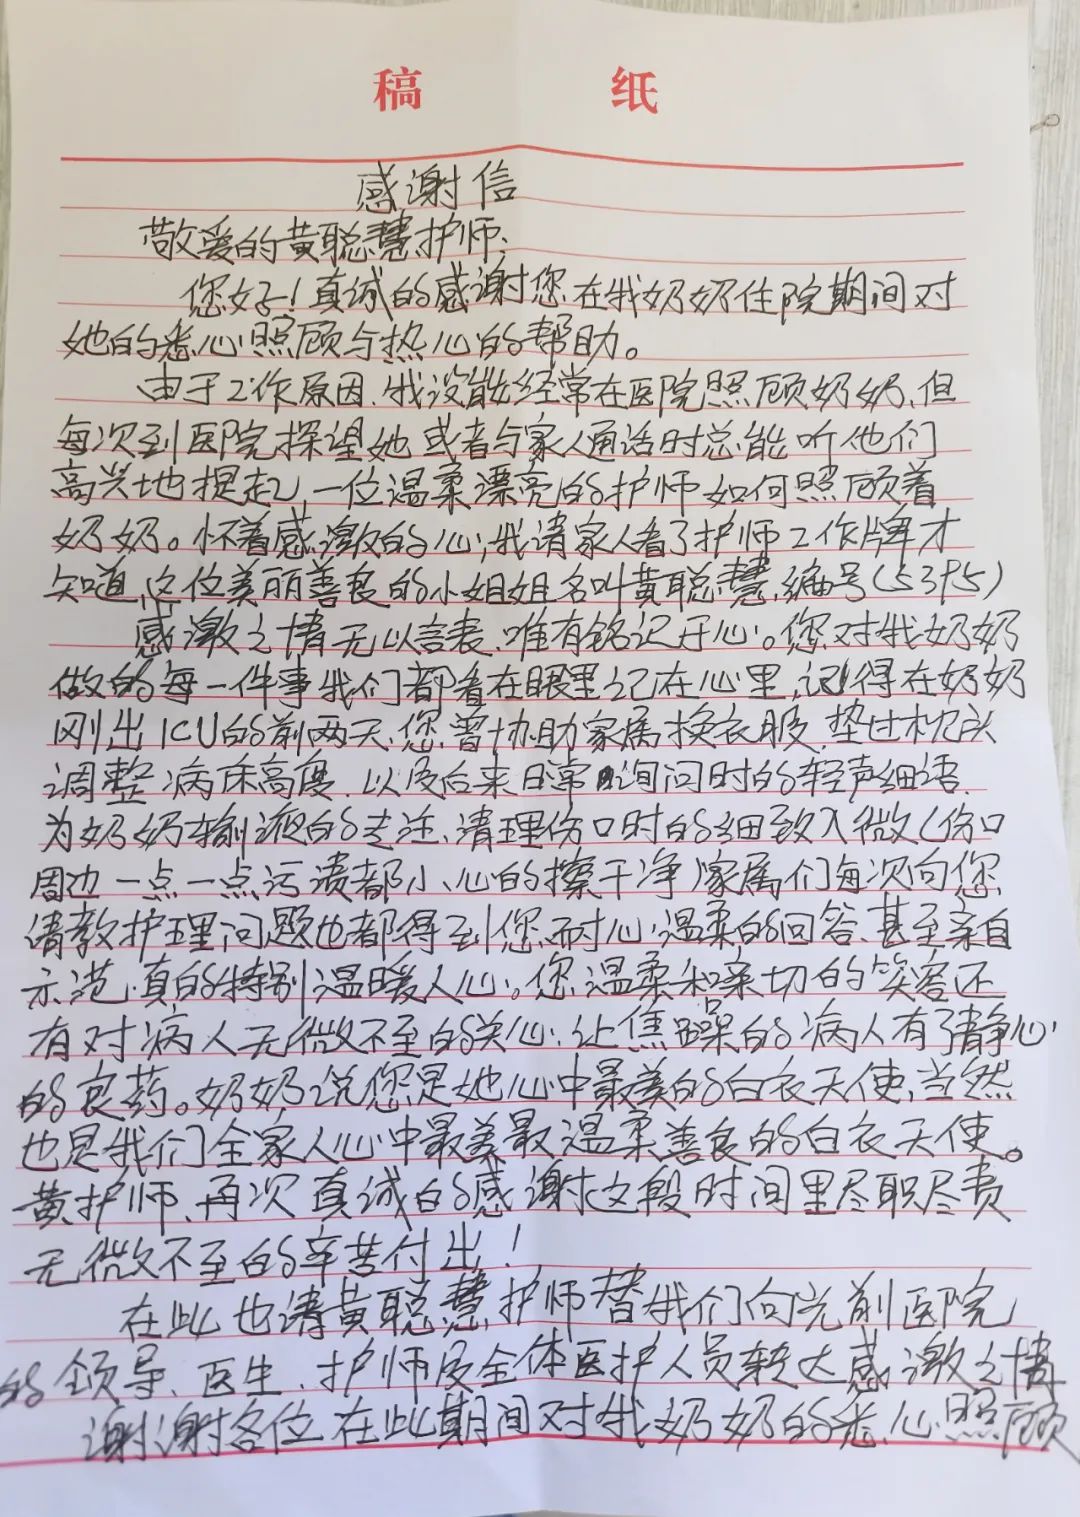 稿 纸
感谢信
敬爱的黄聪慧护师:
您好!真诚的感谢您在我奶奶住院期间对
她的悉心照顾与热心的帮助。
由于工作原因,我没能经常在医院照顾奶奶,但
每次到医院探望她或者与家人通话时总能听他们
高兴地提起,一位温柔漂亮的护师如何照顾着
奶奶。怀着感激的心,我请家人看了护师工作牌才
知道,这位美丽善良的小姐姐名叫黄聪慧,编号(5395)
感激之情无以言表,唯有铭记于心。您对我奶奶
做的每一件事我们都看在眼里记在心里,记得在奶奶
刚出ICU的前两天,您曾协助家属换衣服,垫过枕头
调整病床高度,以及后来日常询问时的轻声细语,
为奶奶输液的专注,清理伤口时的细致入微(伤口
周边一点一点污渍都小心的擦干净)家属们每次向您
请教护理问题也都得到您耐心温柔的回答,甚至亲自
示范,真的特别温暖人心。您温柔和亲切的笑容还
有对病人无微不至的关心,让焦躁的病人有了静心
的良药。奶奶说您是她心中最美的白衣天使,当然
也是我们全家人心中最美最温柔善良的白衣天使。
黄护师,再次真诚的感谢这段时间里尽职尽责
无微不至的辛苦付出!
在此也请黄聪慧护师替我们向光前医院
的领导、医生、护师及全体医护人员转达感激之情
谢谢各位在此期间对我奶奶的悉心照顾